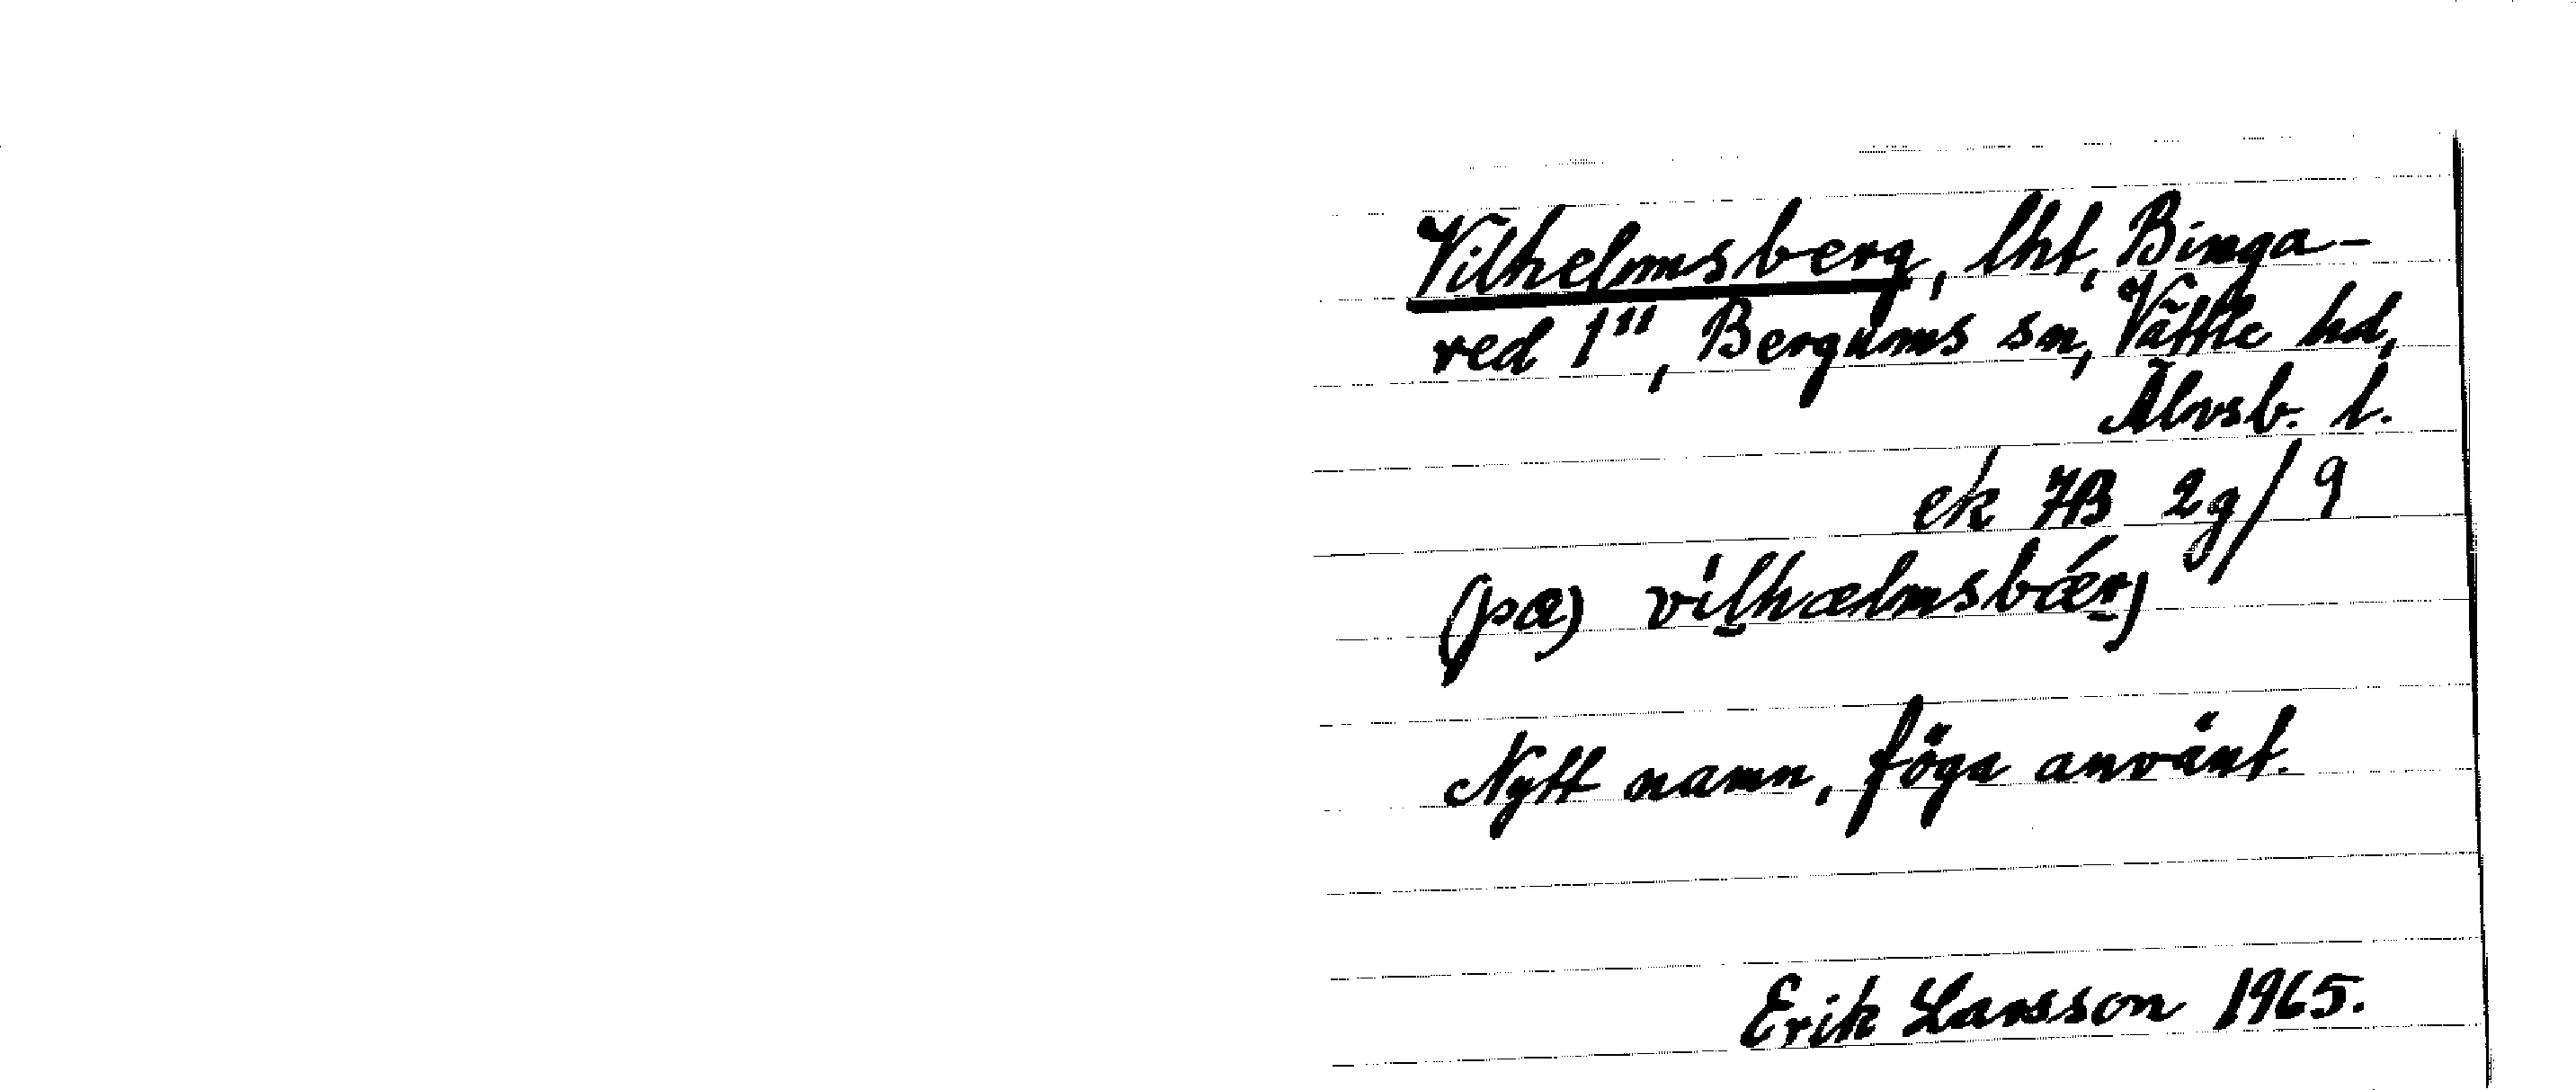 Vilhelmsberg, lht, Binga-
red 1¹¹, Bergums sn, Vättle hd,
Älvsb. l.
ek 7B 2g/9
(pa) vìlhælmsbǽrj
Nytt namn, föga använt.
Erik Larsson 1965.